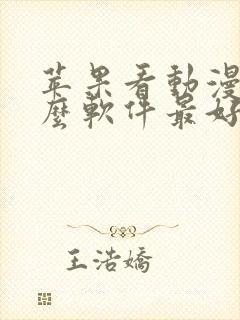 苹果看動漫
麼軟件最好
王浩嬌